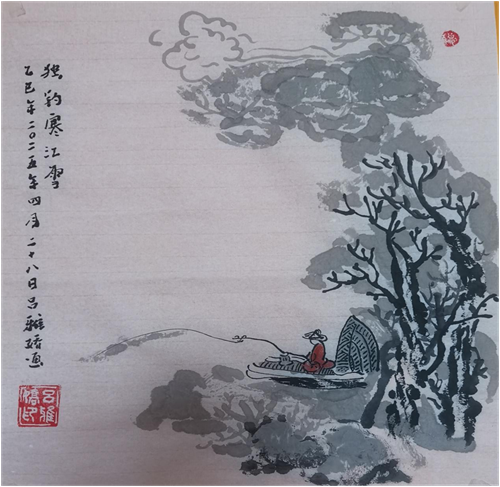 独钓寒江雪
乙巳年二〇二五年四月二十八日吕雅婧画
吕雅
婧印